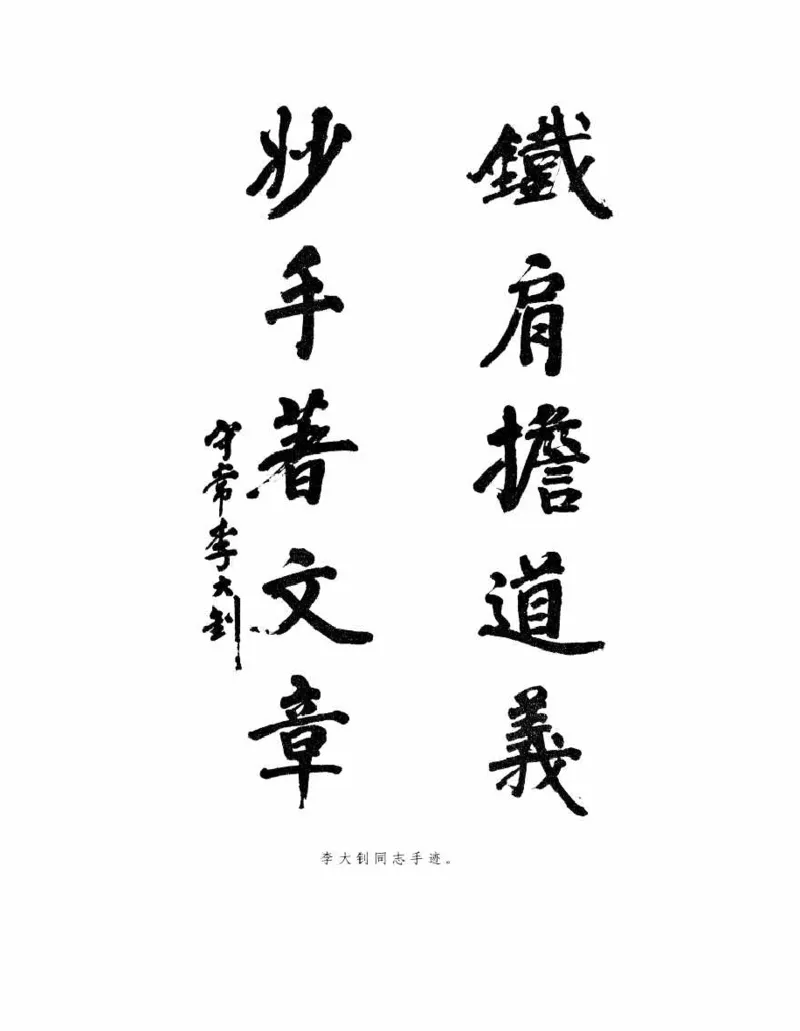 鐵肩擔道義
妙手著文章
守常李大釗
李大钊同志手迹。